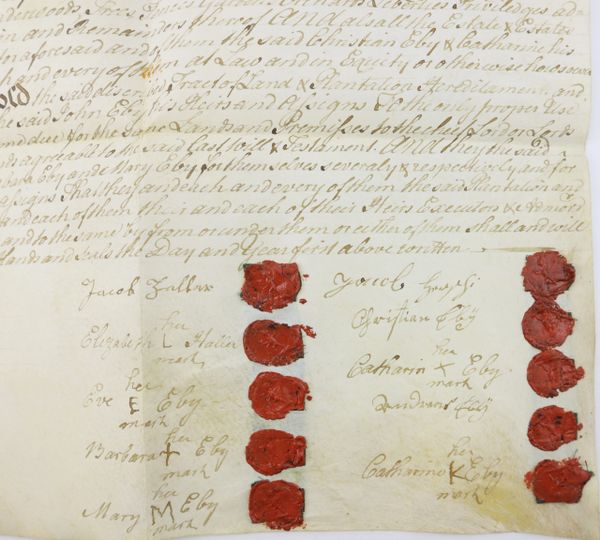 in and Remainders thereof And also all the Estate & Estates
aforesaid and of them the said Christian Eby & Catharine his
and every of them at Law and in Equity or otherwise howsoever
the said described Tract of Land & Plantation Hereditaments and
the said John Eby his Heirs and assigns to the only proper Use
and due for the same Land and Premisses to the chief Lord or Lords
agreeable to the said last Will & Testament. And they the said
Eby and Mary Eby for themselves severaly & respectively and for
assigns That they and each and every of them the said Plantation and
and each of them their and each of their Heirs Executors & Admors
and to the same by from or under them or either of them shall and will
Hands and Seals the Day and Year first above written
Jacob
Jacob
Christian Eby
her
Elizabeth L
mark
her
Catharin + Eby
mark
her
Eve E Eby
mark
Eby
her
Barbara + Eby
mark
her
Catharine K Eby
mark
her
Mary M Eby
mark